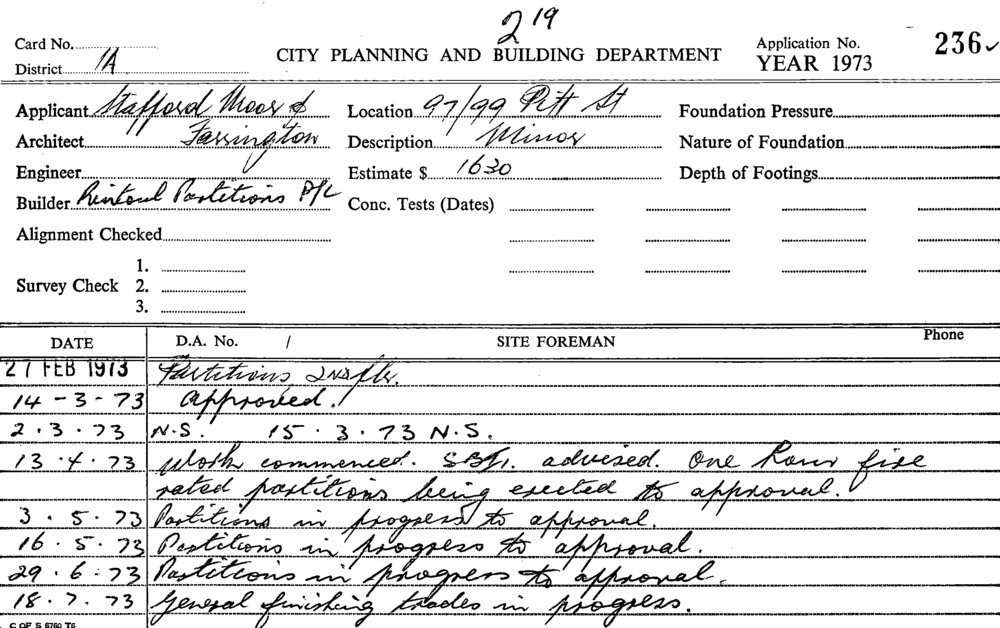 2 19
Card No.
CITY PLANNING AND BUILDING DEPARTMENT
Application No. 236
District 1A
YEAR 1973
Applicant Stafford Moor & Location 97/99 Pitt St Foundation Pressure
Architect Farrington Description Minor Nature of Foundation
Engineer Estimate $ 1630 Depth of Footings
Builder Rintoul Partitions P/L Conc. Tests (Dates)
Alignment Checked
1.
Survey Check 2.
3.
DATE D.A. No. / SITE FOREMAN Phone
27 FEB 1973 Partitions, 2nd flr.
14 - 3 - 73 Approved.
2 . 3 . 73 N.S. 15 . 3 . 73 N.S.
13 . 4 . 73 Work commenced. advised. One hour fire
rated partitions being erected to approval.
3 . 5 . 73 Partitions in progress to approval.
16 . 5 . 73 Partitions in progress to approval.
29 . 6 . 73 Partitions in progress to approval.
18 . 7 . 73 General finishing trades in progress.
C OF S 5760 T6